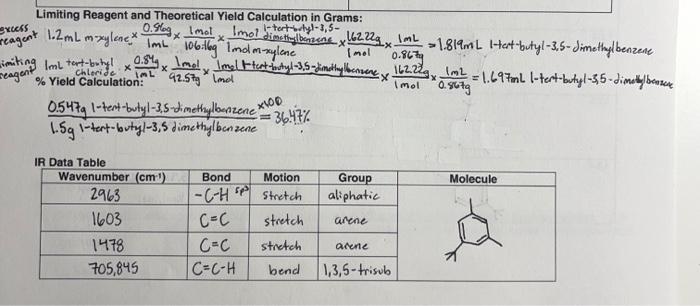 Limiting Reagent and Theoretical Yield Calculation in Grams:
excess reagent 1.2mL m-xylene × 0.868g / 1mL × 1mol / 106.16g × 1mol 1-tert-butyl-3,5-dimethylbenzene / 1mol m-xylene × 162.22g / 1mol × 1mL / 0.867g = 1.819mL 1-tert-butyl-3,5-dimethylbenzene
limiting reagent 1mL tert-butyl chloride × 0.84g / 1mL × 1mol / 92.57g × 1mol 1-tert-butyl-3,5-dimethylbenzene / 1mol × 162.22g / 1mol × 1mL / 0.867g = 1.697mL 1-tert-butyl-3,5-dimethylbenzene
% Yield Calculation:
0.547g 1-tert-butyl-3,5-dimethylbenzene ×100
1.5g 1-tert-butyl-3,5 dimethylbenzene = 36.47%
IR Data Table
Wavenumber (cm⁻¹) Bond Motion Group Molecule
2963 -C-H sp³ stretch aliphatic
1603 C=C stretch arene
1478 C=C stretch arene
705,845 C=C-H bend 1,3,5-trisub